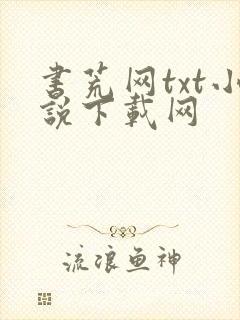 书荒网txt小
説下载网
流浪鱼神